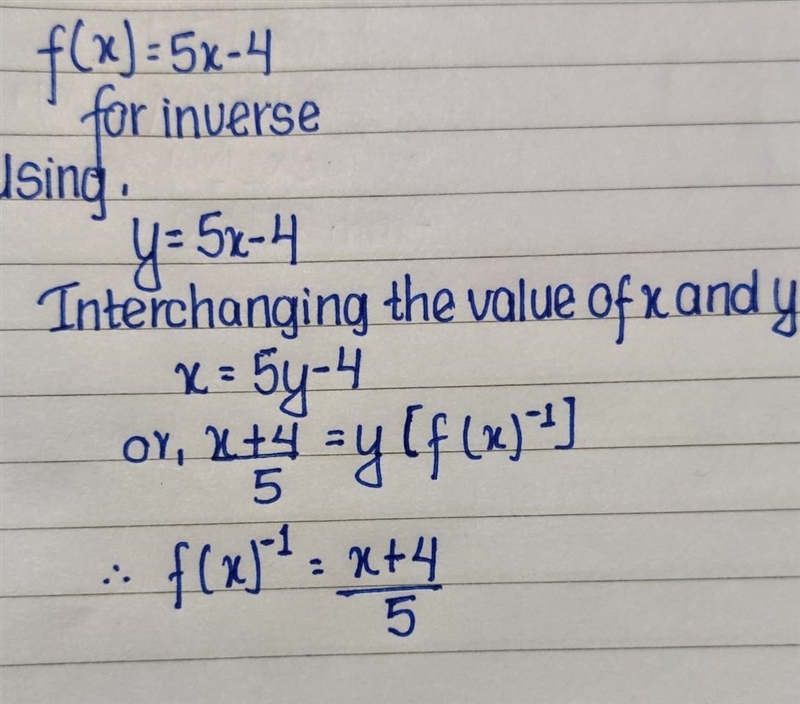 f(x) = 5x-4
for inverse
Using.
y = 5x-4
Interchanging the value of x and y
x = 5y-4
or, \frac{x+4}{5} = y [f(x)^{-1}]
∴ f(x)^{-1} = \frac{x+4}{5}